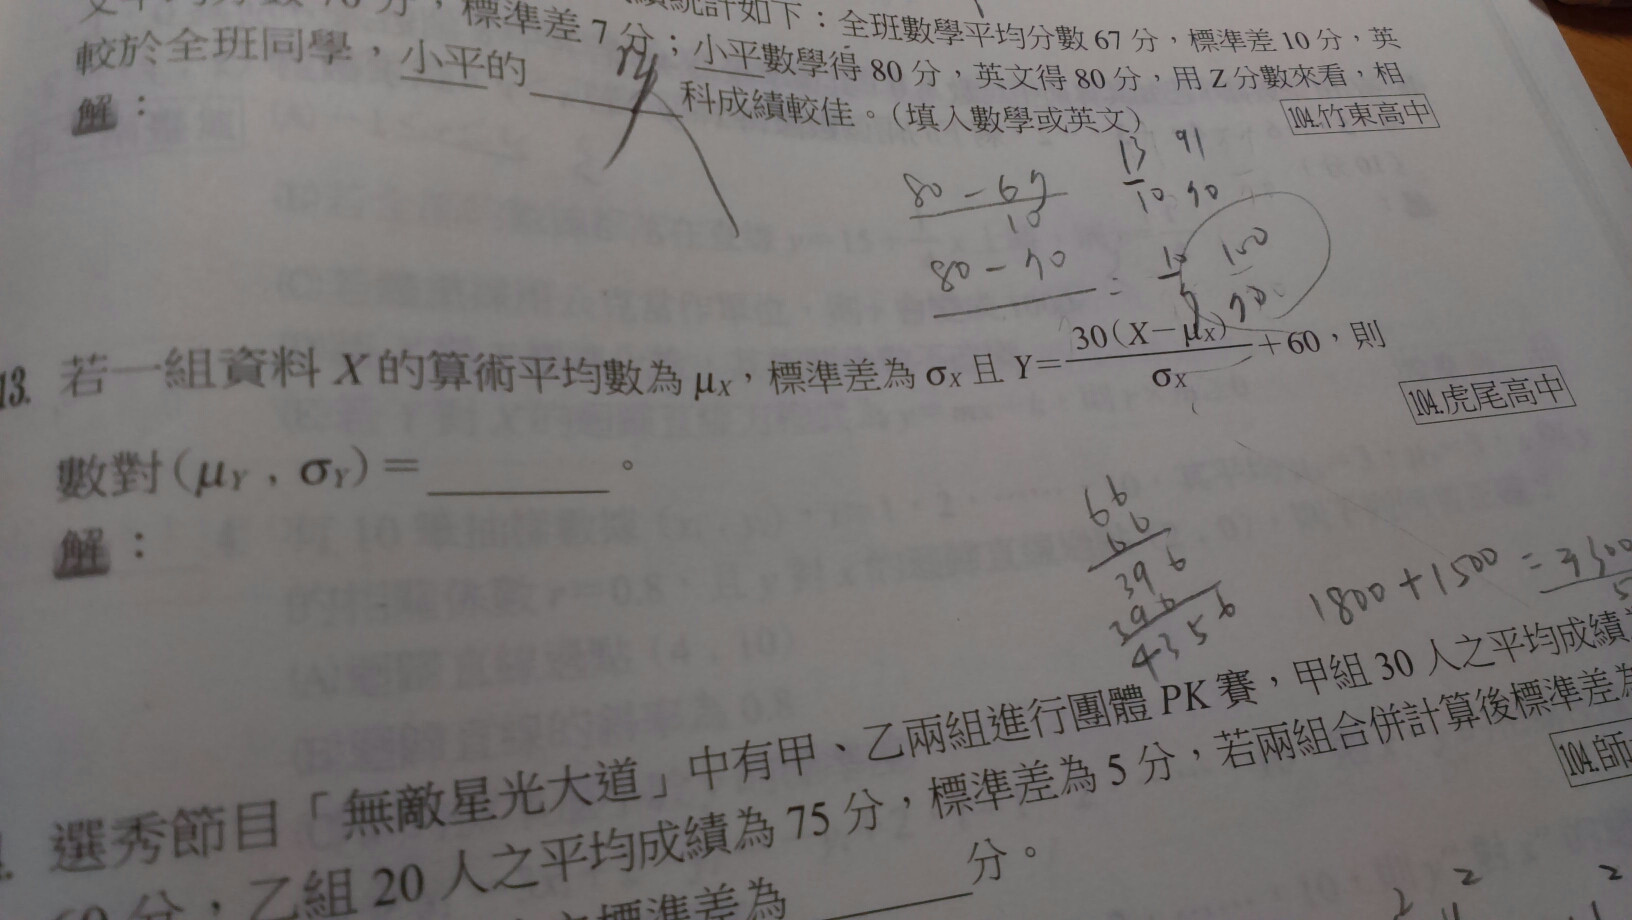 標準差7分；小平數學得80分，英文得80分，用Z分數來看，相
統計如下：全班數學平均分數67分，標準差10分，英
較於全班同學，小平的______科成績較佳。（填入數學或英文）
104.竹東高中
解：
80-67
10
13 91
10 70
80-70
= 10 100
7 70
13. 若一組資料X的算術平均數為μX，標準差為σX且Y=30(X-μX)/σX+60，則
104.虎尾高中
數對(μY，σY)=______。
解：
66
66
396
396
4356
1800+1500=
選秀節目「無敵星光大道」中有甲、乙兩組進行團體PK賽，甲組30人之平均成績
60分，乙組20人之平均成績為75分，標準差為5分，若兩組合併計算後標準差為
104.師
標準差為______分。